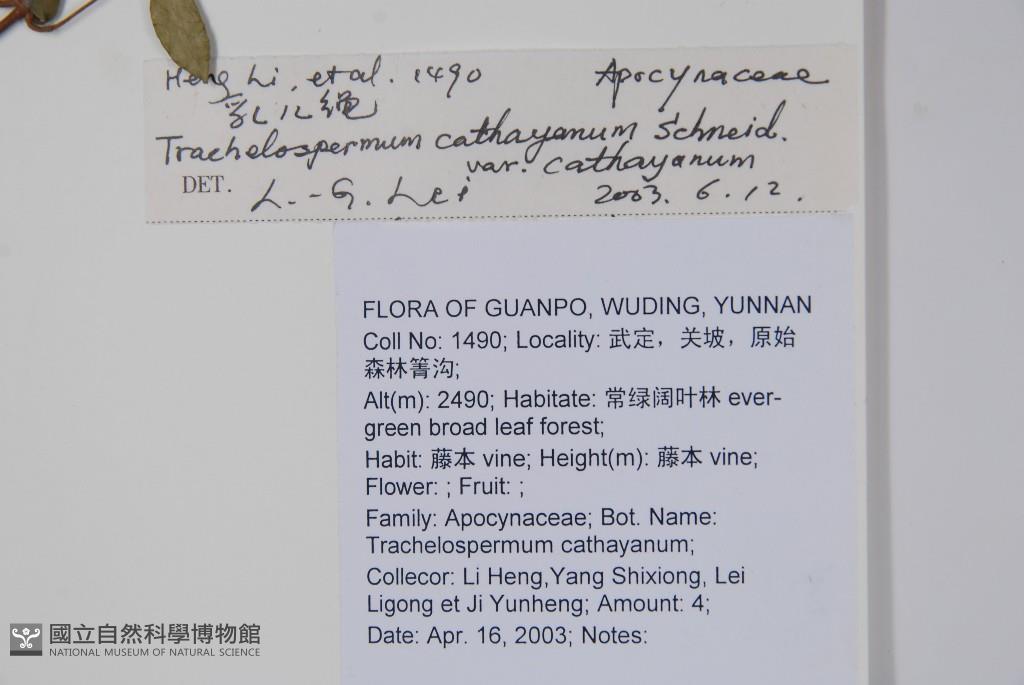 Heng Li, et al. 1490
Apocynaceae
乳儿绳
Trachelospermum cathayanum Schneid.
var. cathayanum
DET. L.-G. Lei 2003. 6. 12.
FLORA OF GUANPO, WUDING, YUNNAN
Coll No: 1490; Locality: 武定，关坡，原始
森林箐沟;
Alt(m): 2490; Habitate: 常绿阔叶林 ever-
green broad leaf forest;
Habit: 藤本 vine; Height(m): 藤本 vine;
Flower: ; Fruit: ;
Family: Apocynaceae; Bot. Name:
Trachelospermum cathayanum;
Collecor: Li Heng,Yang Shixiong, Lei
Ligong et Ji Yunheng; Amount: 4;
Date: Apr. 16, 2003; Notes:
國立自然科學博物館
NATIONAL MUSEUM OF NATURAL SCIENCE